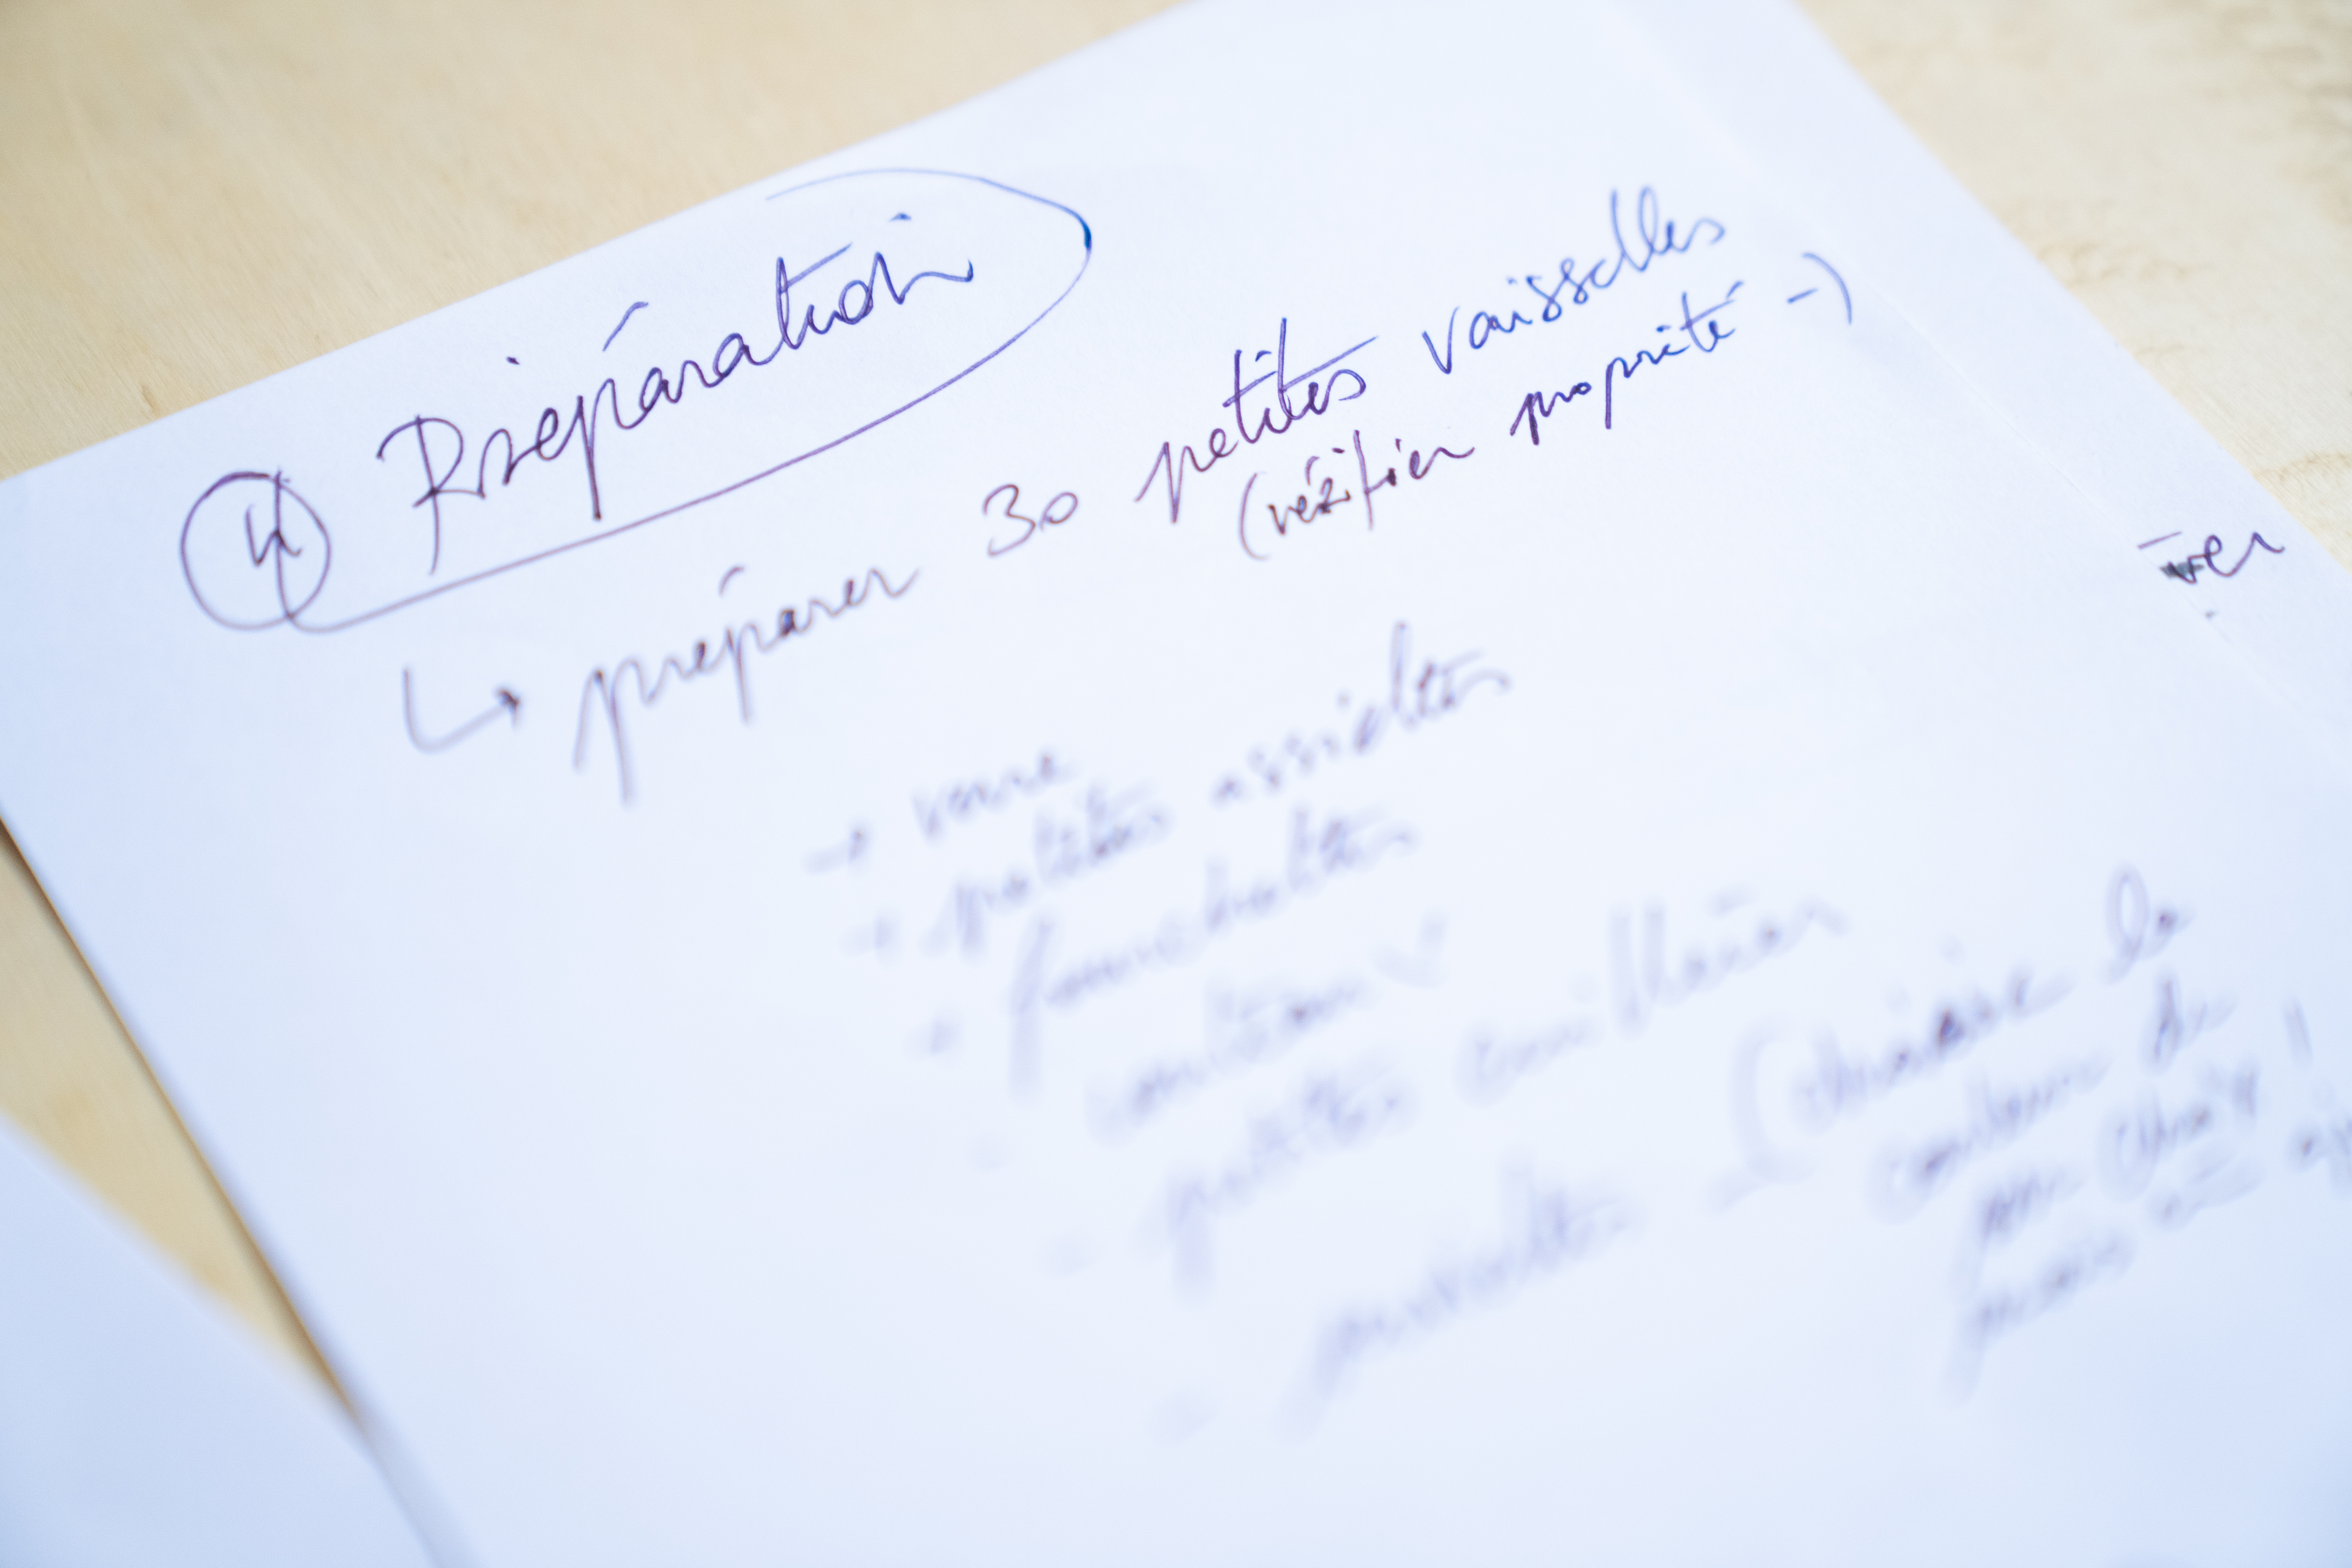 ④ Préparation
↳ préparer 30 petites vaisselles
(vérifier propreté -)
→ verre
→ petites assiettes
→ fourchettes
couteau
petites cuillères
(choisir la
couleur de